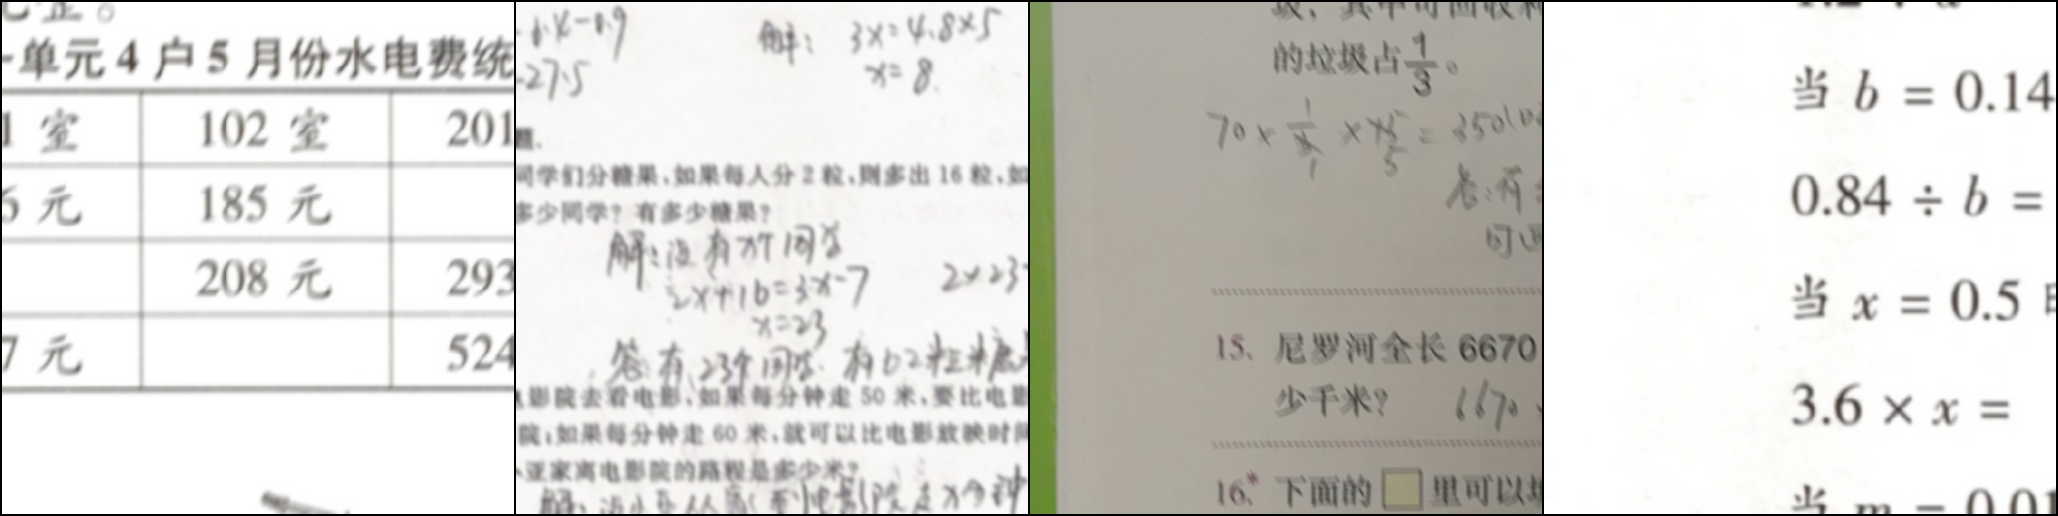 单元4户5月份水电费统
1 室 102 室 201
5 元 185 元
208 元 293
7 元 524
1.4-0.9
解: 3x=4.8×5
27.5
x=8.
题.
同学们分糖果,如果每人分 2 粒,则多出 16 粒,如
多少同学? 有多少糖果?
解:设有x个同学
2x+16=3x-7 2×23
x=23
答:有23个同学. 有62粒糖
影院去看电影,如果每分钟走 50 米,要比电影
院;如果每分钟走 60 米,就可以比电影放映时间
亚家离电影院的路程是多少米?
圾,其中可回收利
的垃圾占1/3。
70×
答:有
可回
15. 尼罗河全长 6670
少千米? 6670
16.* 下面的□里可以填
当 b = 0.14
0.84 ÷ b =
当 x = 0.5
3.6 × x =
当 m = 0.01